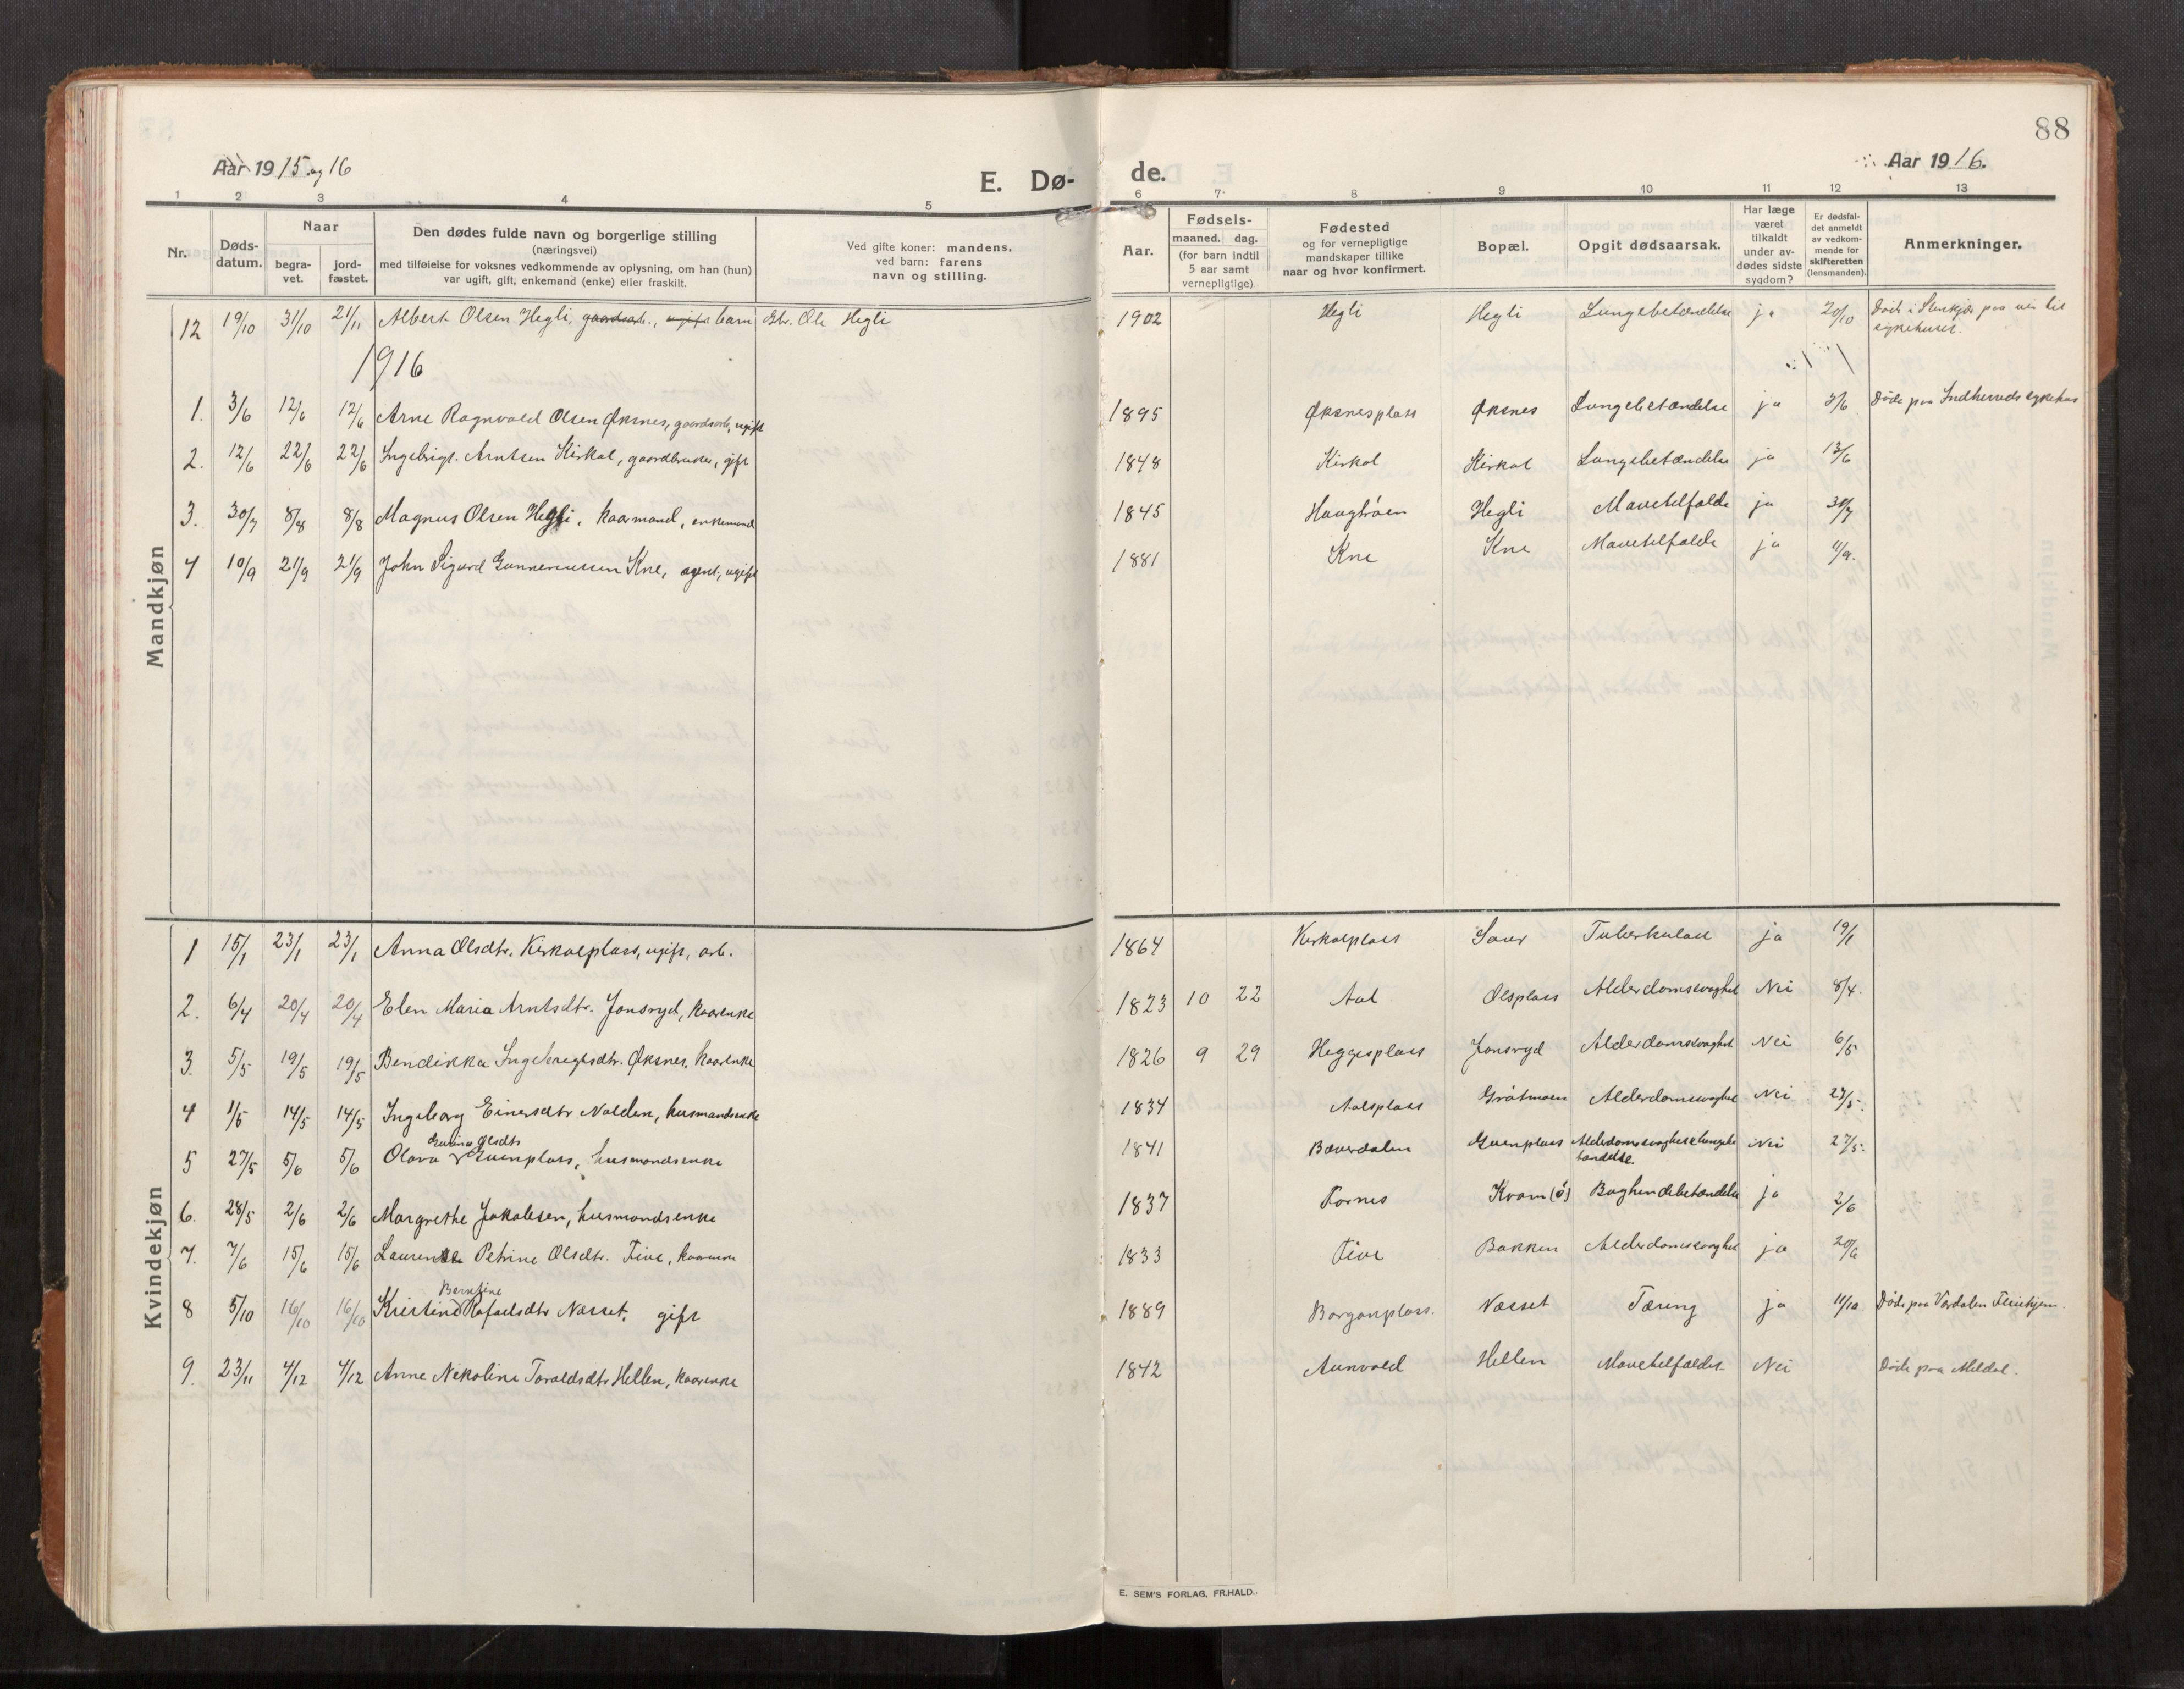 88
Aar 1915 og 16
E. Dø-
de.
Aar 1916.
1 2 3 4 5 6 7 8 9 10 11 12 13
Nr.
Døds-
datum.
Naar
begra-
vet.
jord-
fæstet.
Den dødes fulde navn og borgerlige stilling
(næringsvei)
med tilføielse for voksnes vedkommende av oplysning, om han (hun)
var ugift, gift, enkemand (enke) eller fraskilt.
Ved gifte koner: mandens.
ved barn: farens
navn og stilling.
Aar.
Fødsels-
maaned. dag.
(for barn indtil
5 aar samt
vernepligtige)
Fødested
og for vernepligtige
mandskaper tillike
naar og hvor konfirmert.
Bopæl.
Opgit dødsaarsak.
Har læge
været
tilkaldt
under av-
dødes sidste
sygdom?
Er dødsfal-
det anmeldt
av vedkom-
mende for
skifteretten
(lensmanden).
Anmerkninger.
Mandkjøn
12 19/10 31/10 21/11 Albert Olsen Hegli, gaardsarb., ugift barn Gbr. Ole Hegli 1902 Hegli Hegli Lungebetændelse ja 20/10 Død i Stenkjær paa vei til
sykehuset.
1916
1. 3/6 12/6 12/6 Arne Ragnvald Olsen Øksnes, gaardsarb, ugift 1895 Øksnesplass Øksnes Lungebetændelse ja 7/6 Døde paa Indherreds sykehus
2. 12/6 22/6 22/6 Ingebrigt. Arntsen Kirkol, gaardbruker, gift 1848 Kirkol Kirkol Lungebetændelse ja 13/6
3. 30/7 8/8 8/8 Magnus Olsen Hegli, kaarmand, enkemand 1845 Haugtrøen Hegli Mavetilfælde ja 31/7
4 10/9 21/9 21/9 John Sigurd Gunneriussen Kne, agent, ugift 1881 Kne Kne Mavetilfælde ja 11/9.
Kvindekjøn
1 15/1 23/1 23/1 Anna Olsdtr. Kirkolplass, ugift, arb. 1864 Kirkolplass Saur Tuberkulose ja 19/1
2. 6/4 20/4 20/4 Elen Maria Arntsdtr. Jonsryd, kaarenke 1823 10 22 Aal Olsplass Alderdomssvaghet Nei 8/4.
3. 5/5 19/5 19/5 Bendikka Ingebrigtsdtr. Øksnes, kaarenke 1826 9 29 Heggesplass Jonsryd Alderdomssvaghet Nei 6/5
4 1/5 14/5 14/5 Ingeborg Einersdtr Nolden, husmandsenke 1834 Aalsplass Gråtmoen Alderdomssvaghet Nei 23/5.
Evina Olsdtr
5 27/5 5/6 5/6 Olava Gvenplass, husmandsenke 1841 Bæverdalen Gvenplass Alderdomssvaghet & lungebe
tændelse. Nei 27/5.
6. 28/5 2/6 2/6 Margrethe Jakobsen, husmandsenke 1837 Fornes Kvam (ø) Bughindebetændelse ja 2/6
7. 7/6 15/6 15/6 Laurense Petrine Olsdtr. Five, kaarenke 1833 Five Bakken Alderdomssvaghet ja 20/6
Berntine
8 5/10 16/10 16/10 Kristine Rafaelsdtr Næsset, gift 1889 Borganplass. Næsset Tæring ja 11/10 Døde paa Værdalen Pleiehjem.
9. 23/11 4/12 4/12 Anne Nekoline Taraldsdtr Hellen, kaarenke 1842 Aunvold Hellen Mavetilfælde Nei Døde paa Meldal.
E. SEM'S FORLAG, FR.HALD.